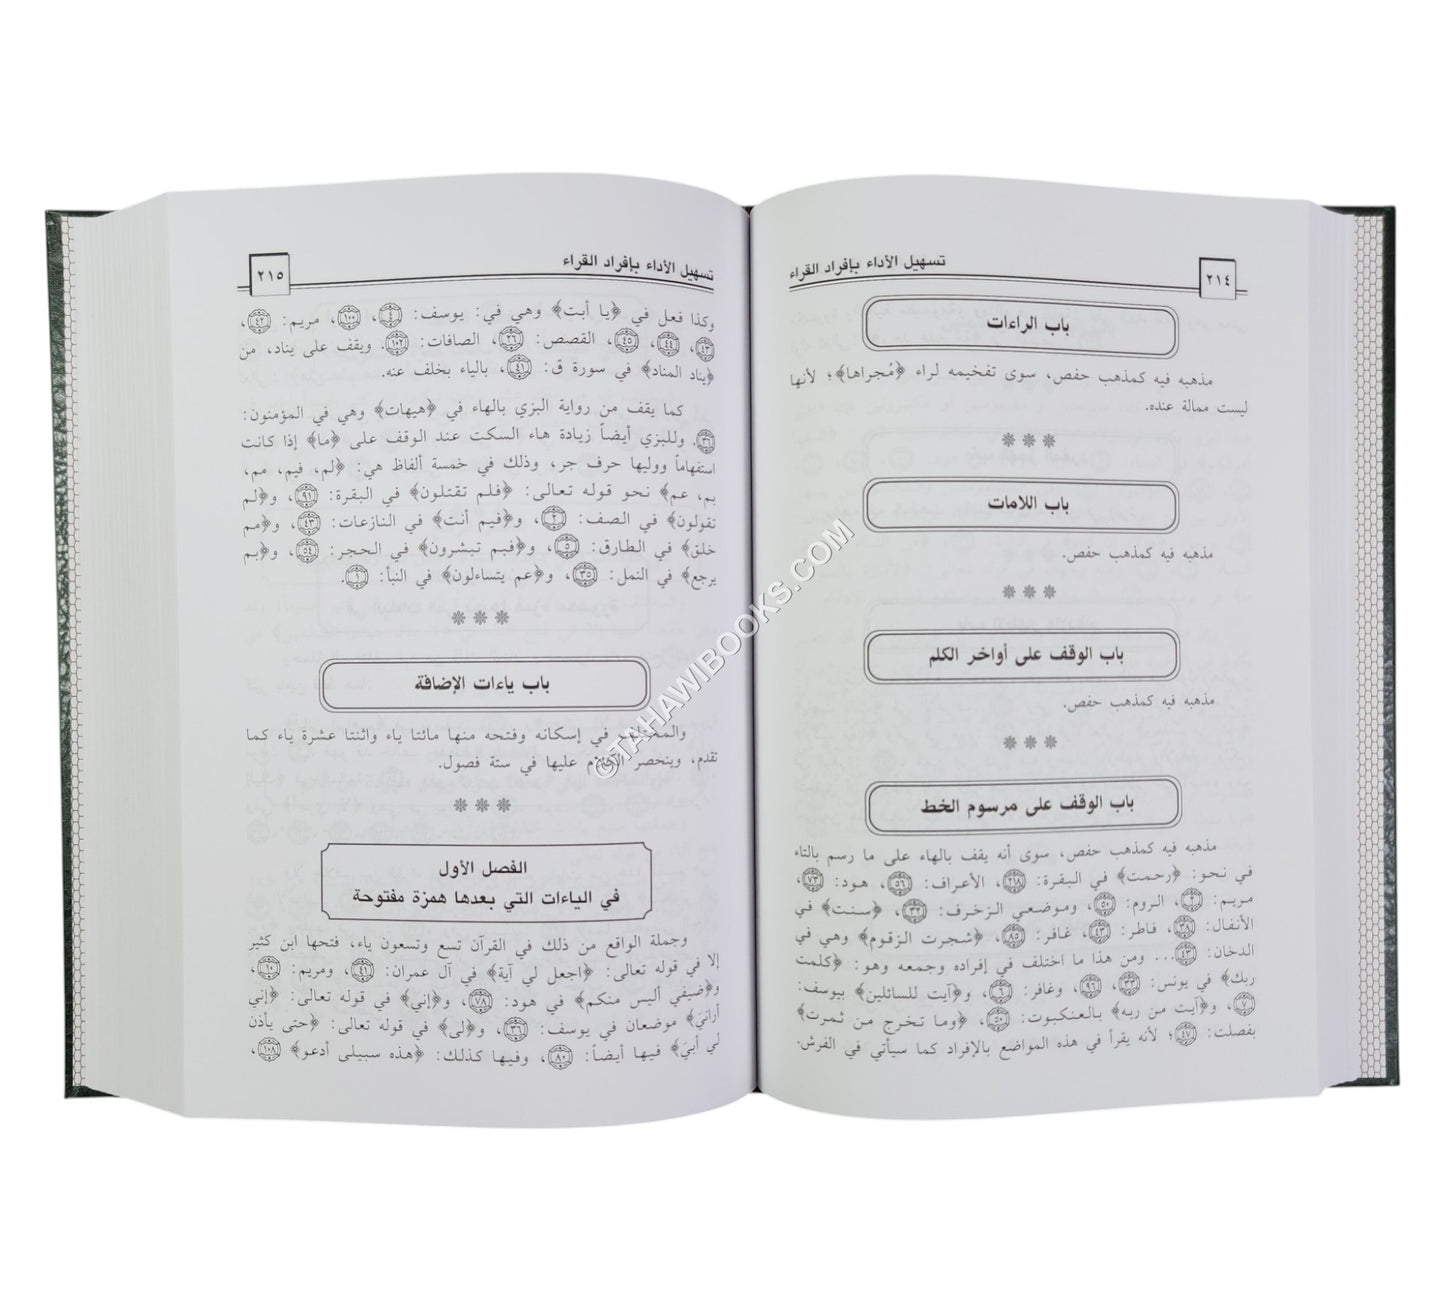 تسهيل الأداء بإفراد القراء
٢١٤
باب الراءات
مذهبه فيه كمذهب حفص، سوى تفخيمه لراء ﴿مُجراها﴾؛ لأنها
ليست ممالة عنده.
باب اللامات
مذهبه فيه كمذهب حفص.
باب الوقف على أواخر الكلم
مذهبه فيه كمذهب حفص.
باب الوقف على مرسوم الخط
مذهبه فيه كمذهب حفص، سوى أنه يقف بالهاء على ما رسم بالتاء
في نحو: ﴿رحمت﴾ في البقرة: ٢١٨، الأعراف: ٥٦، هود: ٧٣،
مريم: ٢، الروم: ٥٠، وموضعي الزخرف: ٣٢، ﴿سنت﴾ في
الأنفال: ٣٨، فاطر: ٤٣، غافر: ٨٥، ﴿شجرت الزقوم﴾ وهي في
الدخان: ٤٣... ومن هذا ما اختلف في إفراده وجمعه وهو: ﴿كلمت
ربك﴾ في يونس: ٣٣، ٩٦، وغافر: ٦، و﴿آيت للسائلين﴾ بيوسف:
٧، و﴿آيت من ربه﴾ بالعنكبوت: ٥٠، ﴿وما تخرج من ثمرت﴾
بفصلت: ٤٧؛ لأنه يقرأ في هذه المواضع بالإفراد كما سيأتي في الفرش.
تسهيل الأداء بإفراد القراء
٢١٥
وكذا فعل في ﴿يا أبت﴾ وهي في: يوسف: ٤، ١٠٠، مريم: ٤٢،
٤٣، ٤٤، ٤٥، القصص: ٢٦، الصافات: ١٠٢. ويقف على يناد، من
﴿يناد المناد﴾ في سورة ق: ٤١، بالياء بخلف عنه.
كما يقف من رواية البزي بالهاء في ﴿هيهات﴾ وهي في المؤمنون:
٣٦. وللبزي أيضاً زيادة هاء السكت عند الوقف على ﴿ما﴾ إذا كانت
استفهاماً ووليها حرف جر، وذلك في خمسة ألفاظ هي: ﴿لم، فيم، مم،
بم، عم﴾ نحو قوله تعالى: ﴿فلم تقتلون﴾ في البقرة: ٩١، و﴿لم
تقولون﴾ في الصف: ٢، و﴿فيم أنت﴾ في النازعات: ٤٣، و﴿مم
خلق﴾ في الطارق: ٥، و﴿فبم تبشرون﴾ في الحجر: ٥٤، و﴿بم
يرجع﴾ في النمل: ٣٥، و﴿عم يتساءلون﴾ في النبأ: ١.
باب ياءات الإضافة
والمختلف في إسكانه وفتحه منها مائتا ياء واثنتا عشرة ياء كما
تقدم، وينحصر الكلام عليها في ستة فصول.
الفصل الأول
في الياءات التي بعدها همزة مفتوحة
وجملة الواقع من ذلك في القرآن تسع وتسعون ياء، فتحها ابن كثير
إلا في قوله تعالى: ﴿اجعل لي آية﴾ في آل عمران: ٤١، ومريم: ١٠،
و﴿ضيفي أليس منكم﴾ في هود: ٧٨، و﴿إني﴾ في قوله تعالى: ﴿إني
أراني﴾ موضعان في يوسف: ٣٦، و﴿لى﴾ في قوله تعالى: ﴿حتى يأذن
لي أبي﴾ فيها أيضاً: ٨٠، وفيها كذلك: ﴿هذه سبيلى أدعو﴾ ١٠٨،
©TAHAWIBOOKS.COM